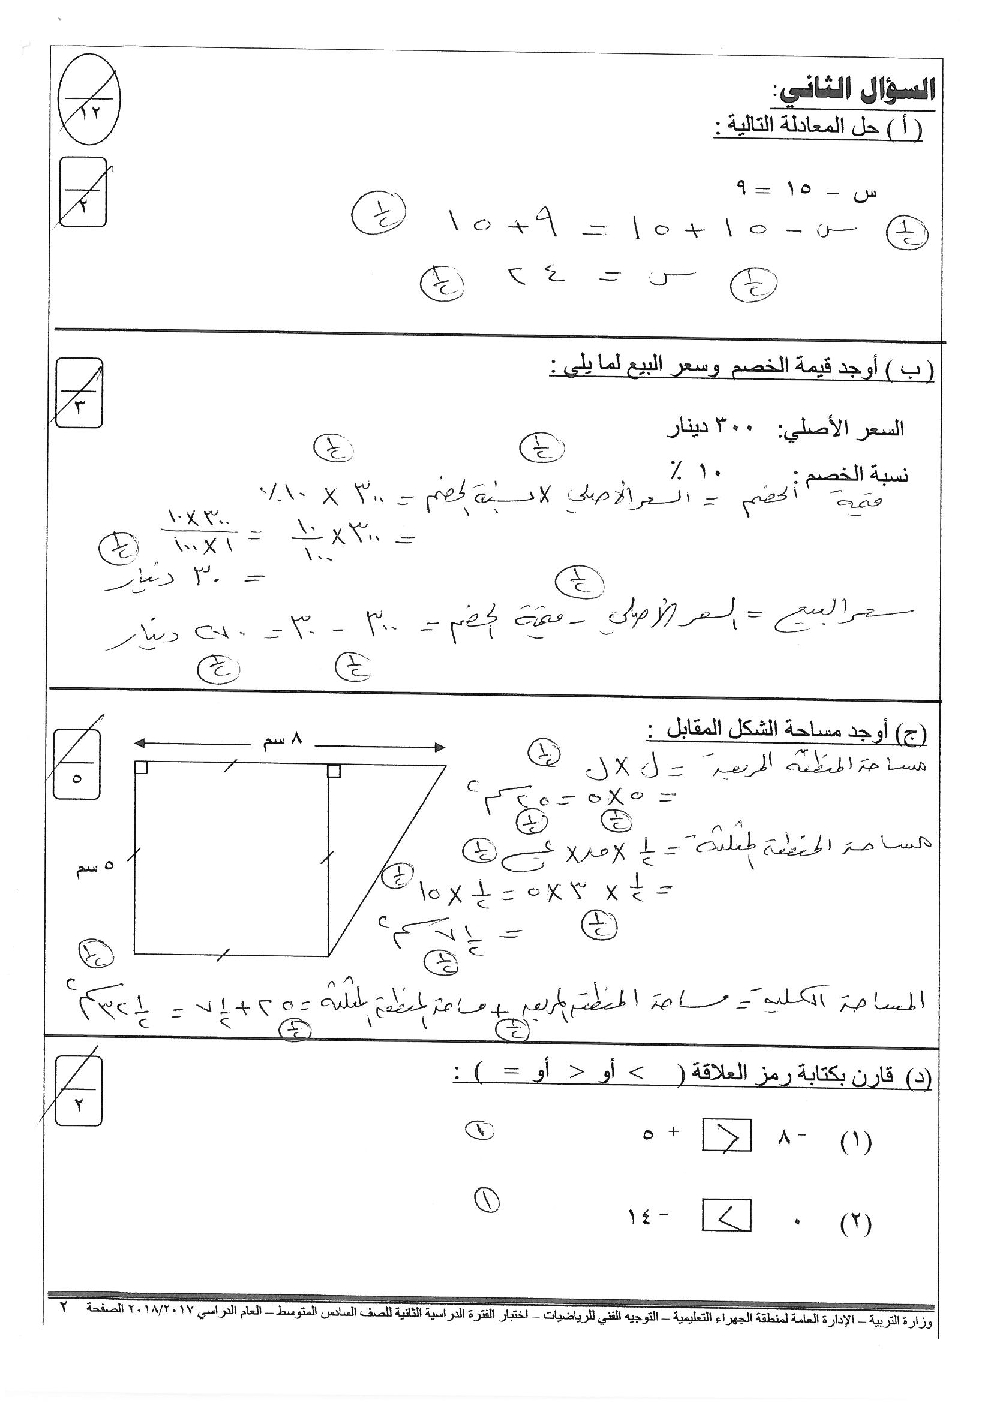 السؤال الثاني:
١٢
( أ ) حل المعادلة التالية :
٢
س – ١٥ = ٩
س – ١٥ + ١٥ = ٩ + ١٥
½ ½
س = ٢٤
½ ½
( ب ) أوجد قيمة الخصم وسعر البيع لما يلي :
٣
السعر الأصلي: ٣٠٠ دينار
½ ½
نسبة الخصم : ١٠ ٪
قيمة الخصم = السعر الأصلي × نسبة الخصم = ٣٠٠ × ١٠٪
= ٣٠٠ × ١٠/١٠٠ = ٣٠٠×١٠/١×١٠٠ ½
= ٣٠ دينار
½
سعر البيع = السعر الأصلي – قيمة الخصم = ٣٠٠ – ٣٠ = ٢٧٠ دينار
½ ½
(ج) أوجد مساحة الشكل المقابل :
٥
٨ سم
٥ سم
مساحة المنطقة المربعة = ل × ل ½
= ٥ × ٥ = ٢٥ سم٢
½ ½
مساحة المنطقة المثلثة = ½ × ق × ع ½
= ½ × ٣ × ٥ = ½ × ١٥ ½
½
= ½ ٧ سم٢
½
½
المساحة الكلية = مساحة المنطقة المربعة + مساحة المنطقة المثلثة = ٢٥ + ½ ٧ = ½ ٣٢ سم٢
½ ½
(د) قارن بكتابة رمز العلاقة ( > أو < أو = ) :
٢
(١) –٨ < +٥ ١
(٢) ٠ > –١٤ ١
وزارة التربية – الإدارة العامة لمنطقة الجهراء التعليمية – التوجيه الفني للرياضيات – اختبار الفترة الدراسية الثانية للصف السادس المتوسط – العام الدراسي ٢٠١٨/٢٠١٧ الصفحة ٢